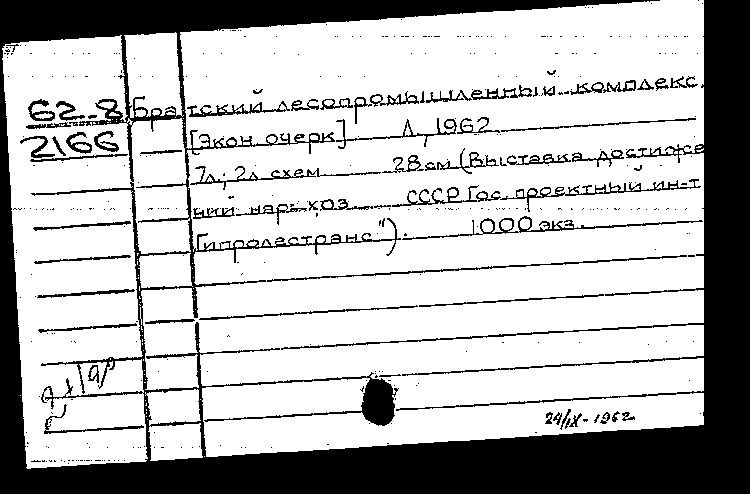 62-8 Братский лесопромышленный комплекс.
2166 [Экон. очерк] Л, 1962.
7л.; 2л схем. 28см (Выставка достиже
ний нар. хоз. СССР Гос. проектный ин-т
Гипролестранс"). 1000 экз.
24/IX-1962